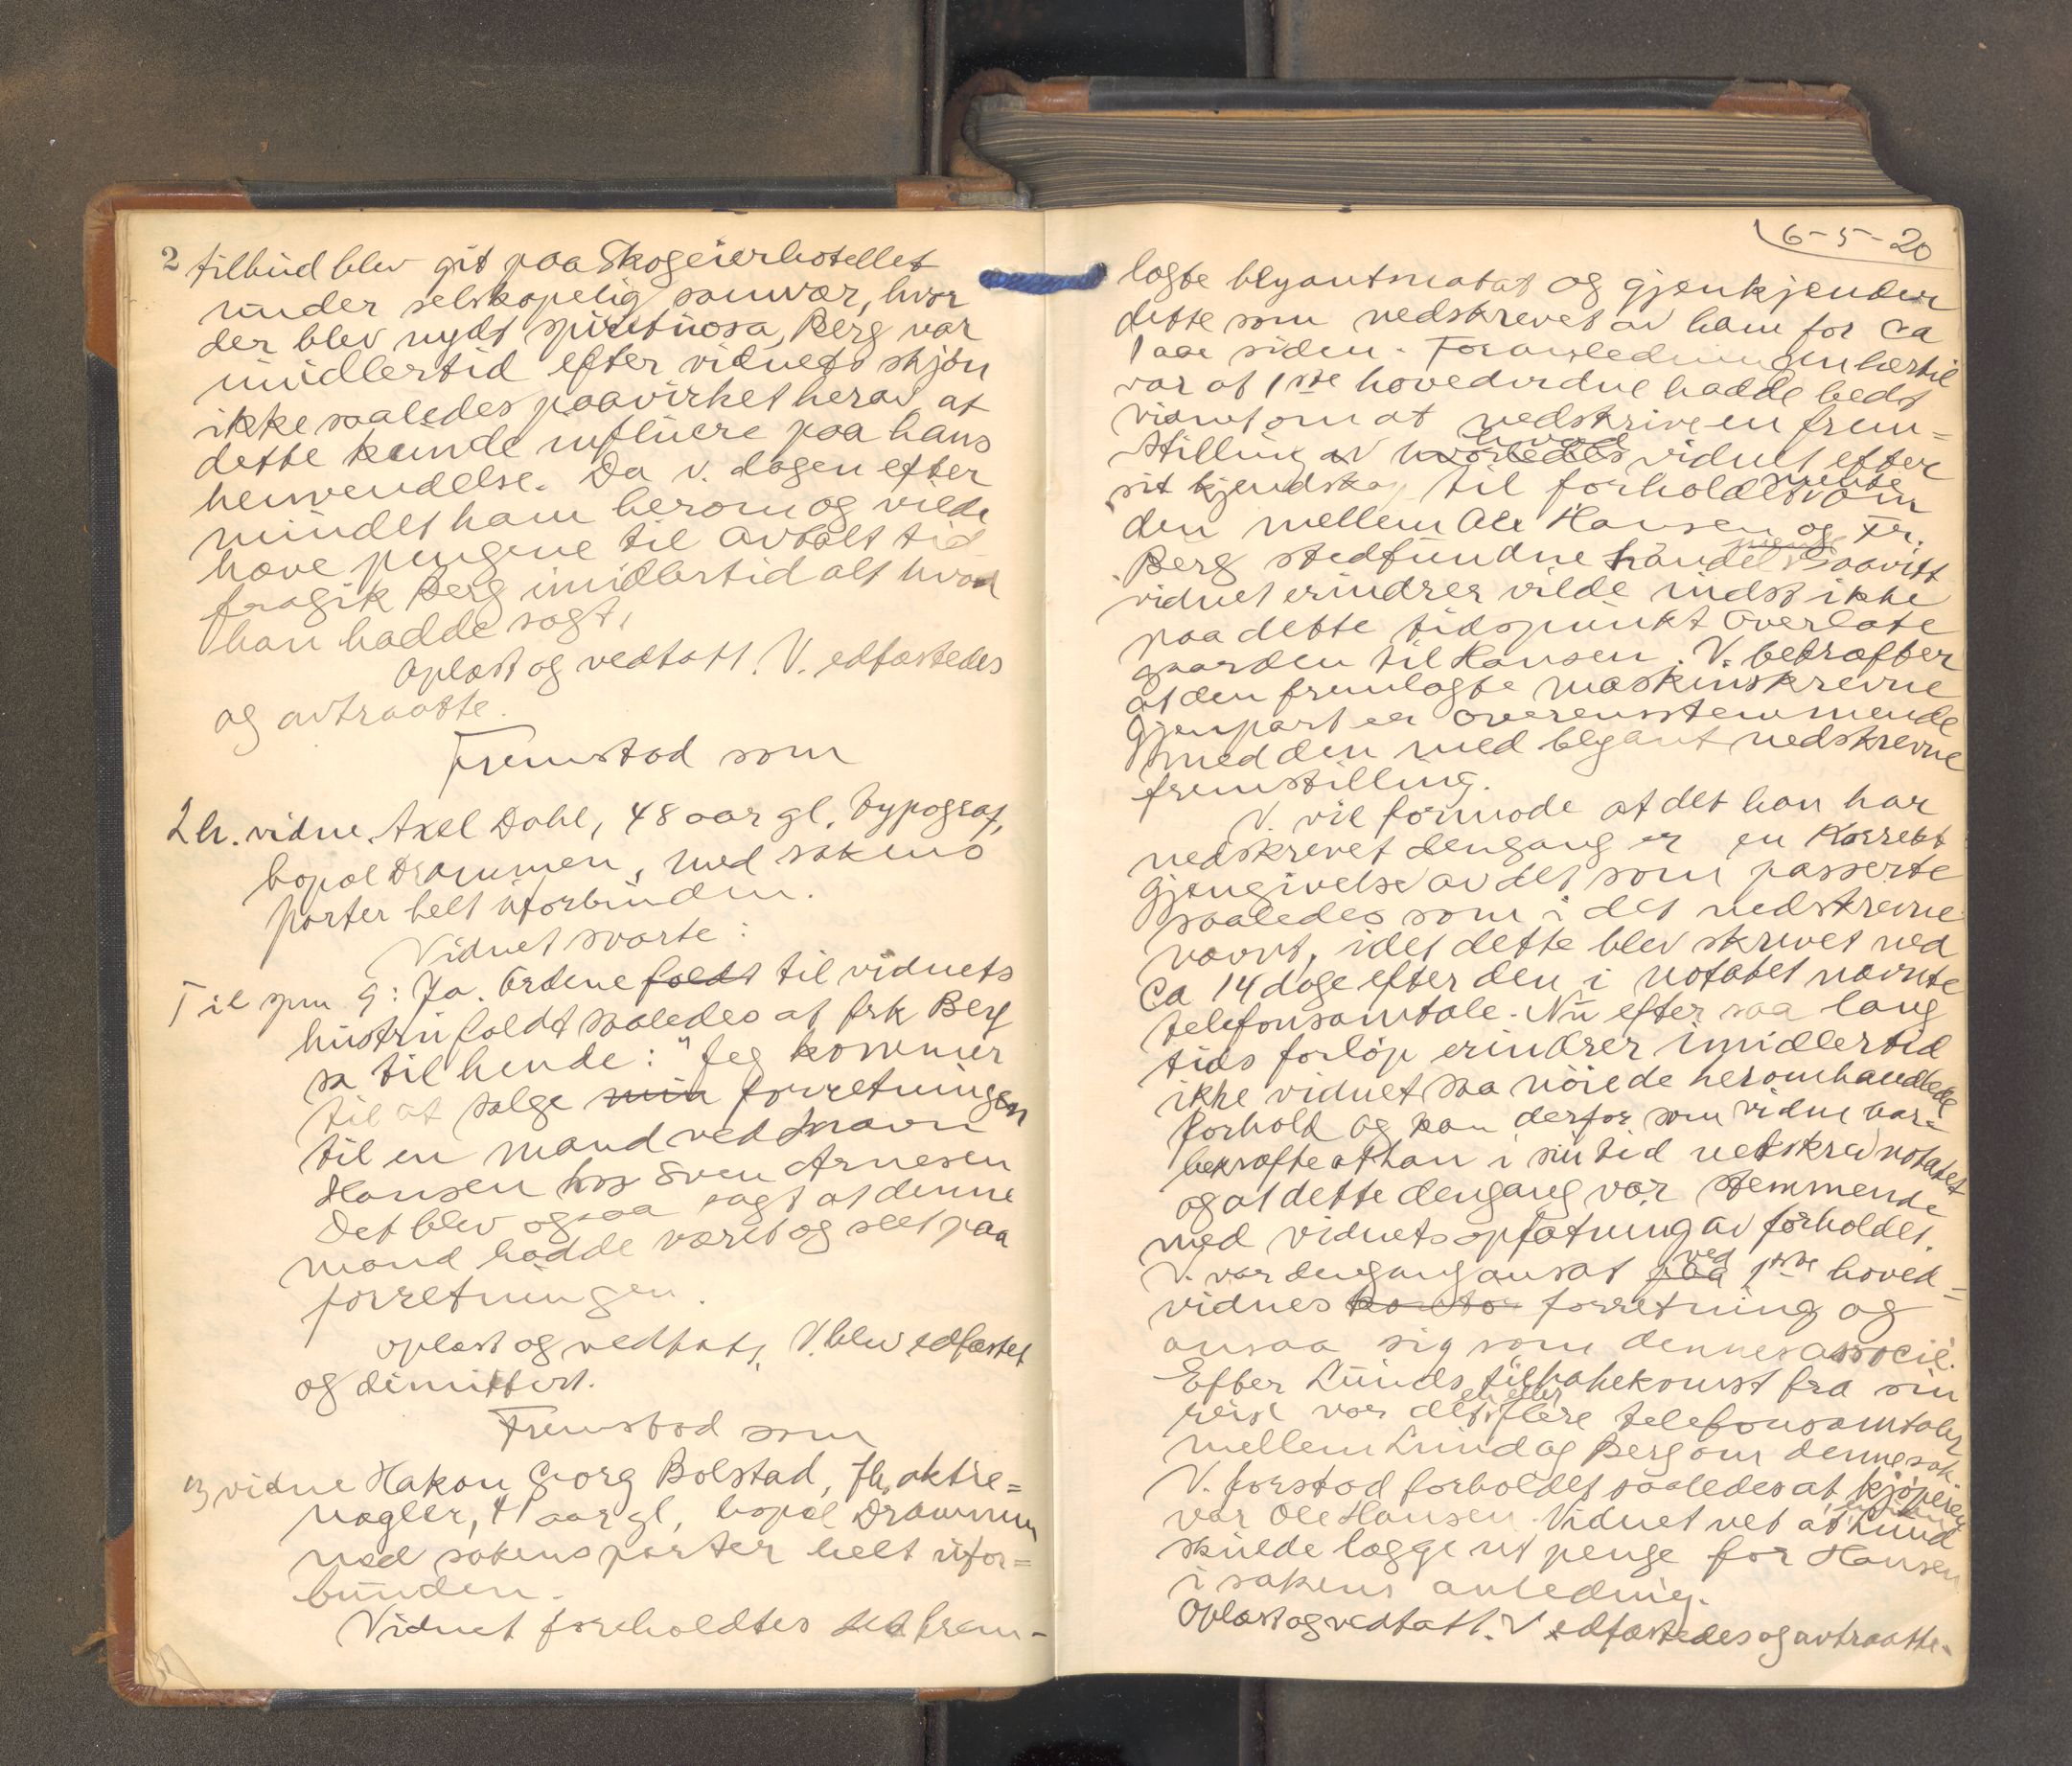 2
tilbud blev git paa Skogeierhotellet
under selskapelig samvær, hvor
der blev nydt spirituosa, Berg var
imidlertid efter vidnets skjøn
ikke saaledes paavirket herav at
dette kunde influere paa hans
henvendelse. Da v. dagen efter
mindet ham herom og vilde
have pengene til avtalt tid
fragik Berg imidlertid alt hvad
han hadde sagt,
Oplæst og vedtatt. V. edfæstedes
og avtraatte.
Fremstod som
2 h. vidne Axel Dahl, 48 aar gl, typograf,
bopæl Drammen, med sakens
parter helt uforbunden.
Vidnet svarte:
Til spm 9: Ja. Ordene faldt til vidnets
hustru faldt saaledes at frk Berg
sa til hende: "Jeg kommer
til at sælge min forretningen
til en mand ved navn
Hansen hos Sven Arnesen
Det blev ogsaa sagt at denne
mand hadde været og seet paa
forretningen.
oplæst og vedtat, V. blev edfæstet
og dimittert.
Fremstod som
3 vidne Hakon Georg Bolstad, fh. aktie=
mægler, 41 aar gl, bopæl Drammen
med sakens parter helt ufor=
bunden.
Vidnet foreholdtes det frem-
6-5-20
lagte blyantsnotat og gjenkjender
dette som nedskrevet av ham for ca
1 aar siden. Foranledningen hertil
var at 1ste hovedvidne hadde bedt
vidnet om at nedskrive en frem=
stilling av hvorledes hvad vidnet efter
sit kjendskap til forholdet mente om
den mellem Ole Hansen og Fr.
Berg stedfundne handel. Saavitt
vidnet erindrer vilde indst ikke
paa dette tidspunkt overlate
gaarden til Hansen. V. bekræfter
at den fremlagte maskinskrevne
Gjenpart er overensstemmende
med den med blyant nedskrevne
fremstilling.
V. vil formode at det han har
nedskrevet dengang er en korrekt
gjengivelse av det som passerte
saaledes som i det nedskrevne
nævnt, idet dette blev skrevet ned
ca 14 dage efter den i notatet nævnte
telefonsamtale. Nu efter saa lang
tids forløp erindrer imidlertid
ikke vidnet saa nøie de heromhandlede
forhold og kan derfor som vidne bare
bekræfte at han i sin tid nedskrev notatet
og at dette dengang var stemmende
med vidnets opfatning av forholdet.
V. var dengang ansat paa ved 1ste hoved=
vidnes kontor forretning og
ansaa sig som dennes associé.
Efter Lunds tilbakekomst fra sin
reise var det en eller flere telefonsamtaler
mellem Lund og Berg om denne sak.
V. forstod forholdet saaledes at kjøperen
var Ole Hansen. Vidnet vet at Lund
skulde lægge ut penge for Hansen
i sakens anledning.
Oplæst og vedtatt. V edfæstedes og avtraatte.